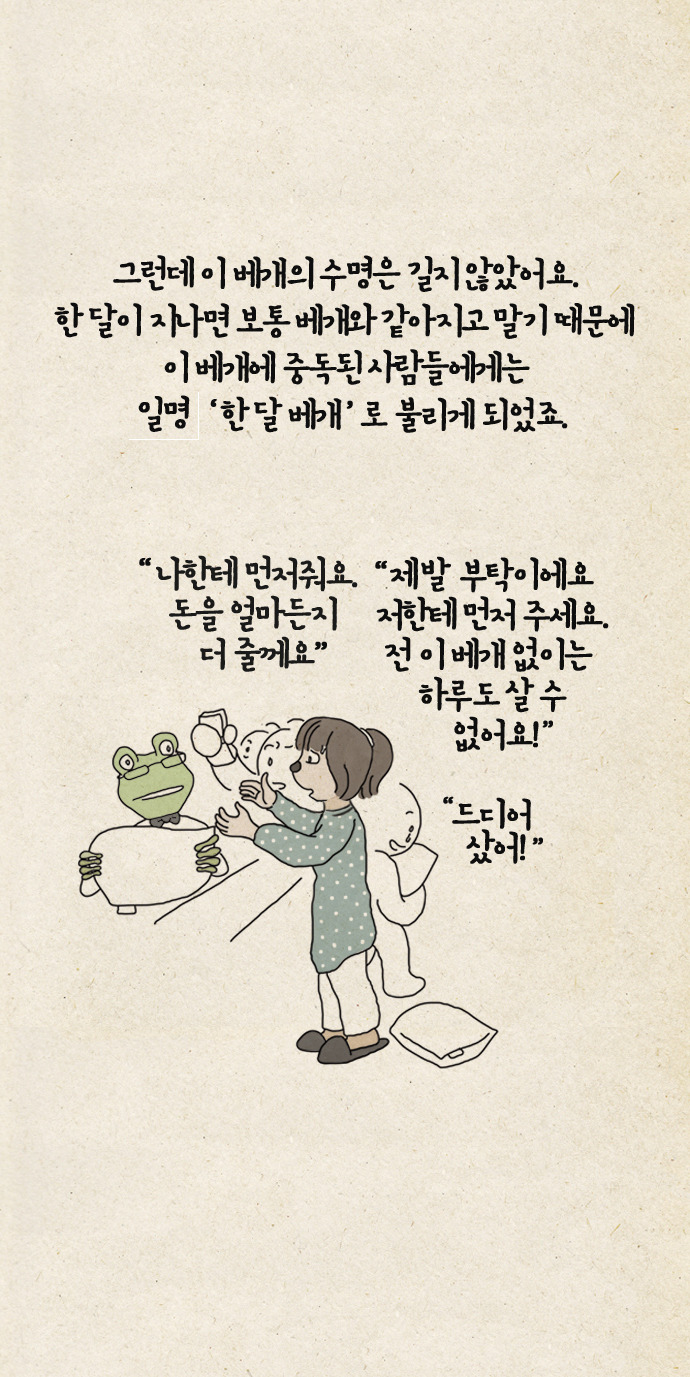 그런데 이 베개의 수명은 길지 않았어요.
한 달이 지나면 보통 베개와 같아지고 말기 때문에
이 베개에 중독된 사람들에게는
일명 ‘한 달 베개’ 로 불리게 되었죠.
“나한테 먼저줘요.
돈을 얼마든지
더 줄께요”
“제발 부탁이에요
저한테 먼저 주세요.
전 이 베개 없이는
하루도 살 수
없어요!”
“드디어
샀어!”